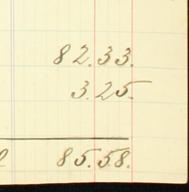 82.33.
3.25.
85.58.